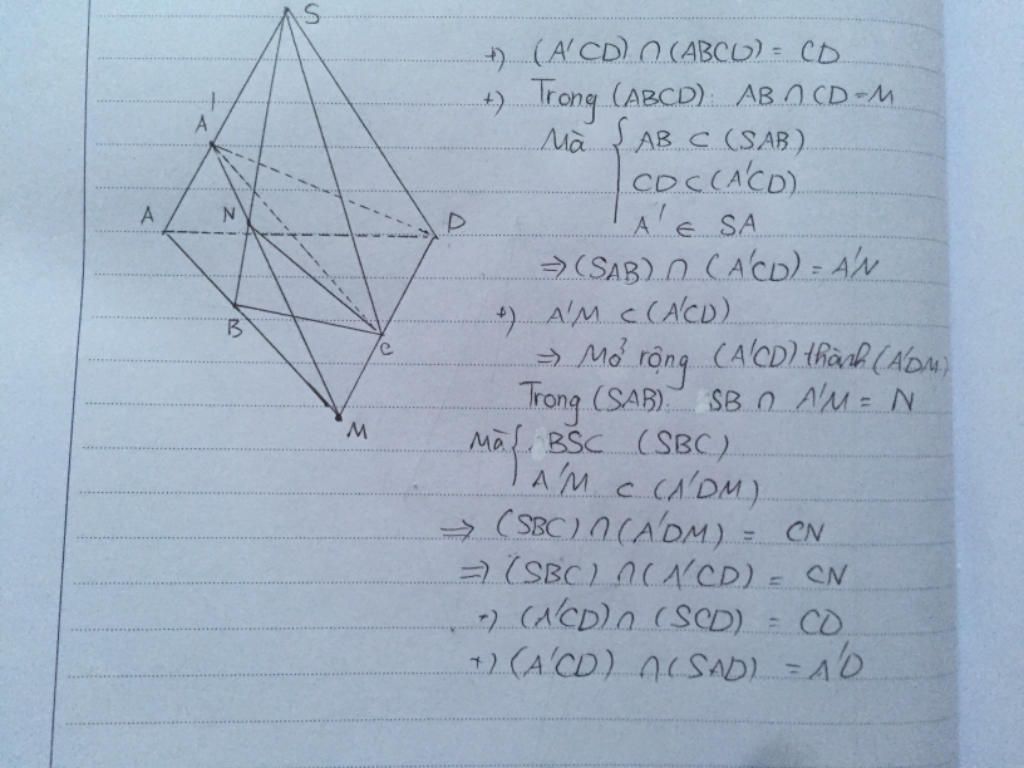 S
A'
A
N
D
B
C
M
+) (A'CD) ∩ (ABCD) = CD
+) Trong (ABCD): AB ∩ CD = M
Mà { AB ⊂ (SAB)
CD ⊂ (A'CD)
A' ∈ SA
⇒ (SAB) ∩ (A'CD) = A'N
+) A'M ⊂ (A'CD)
⇒ Mở rộng (A'CD) thành (A'DM)
Trong (SAB): SB ∩ A'M = N
Mà { BS ⊂ (SBC)
A'M ⊂ (A'DM)
⇒ (SBC) ∩ (A'DM) = CN
⇒ (SBC) ∩ (A'CD) = CN
+) (A'CD) ∩ (SCD) = CD
+) (A'CD) ∩ (SAD) = A'D